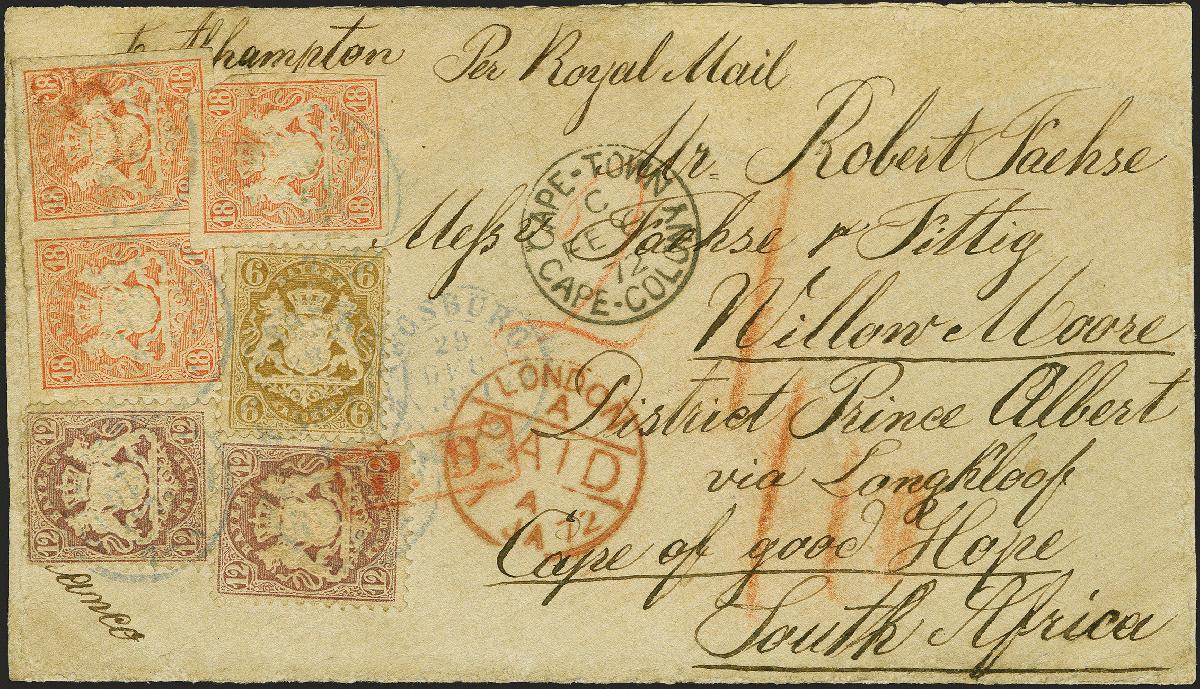 Per Royal Mail
Mr. Robert Faehse
Mess rs Faehse & Fittig
Willow Moore
District Prince Albert
via Langkloof
Cape of good Hope
South Africa
18 18
18 18
18 18
18 18
18 18
18 18
6 6
6 6
12 12
12 12
12
12 12
CAPE-TOWN
FE
72
CAPE-COLONY
29
LONDON
A
PAID
A
JA 72